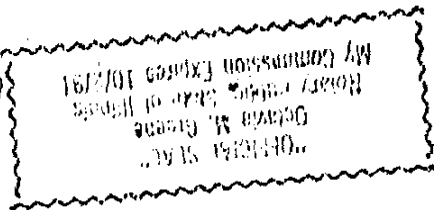 "OFFICIAL SEAL"
Octavia M. Greene
Notary Public, State of Illinois
My Commission Expires 10/2/91